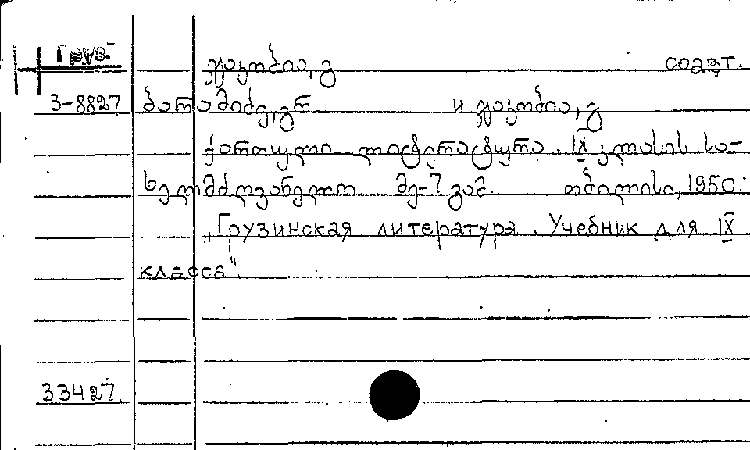 Груз.
ჯაკობია, გ соавт.
3-8827 ბარამიძე, გრ. и ჯაკობია, გ
ქართული ლიტერატურა. IX კლასის სა-
ხელმძღვანელო მე-7 გამ. თბილისი, 1950.
„Грузинская литература. Учебник для IX
класса".
33427.